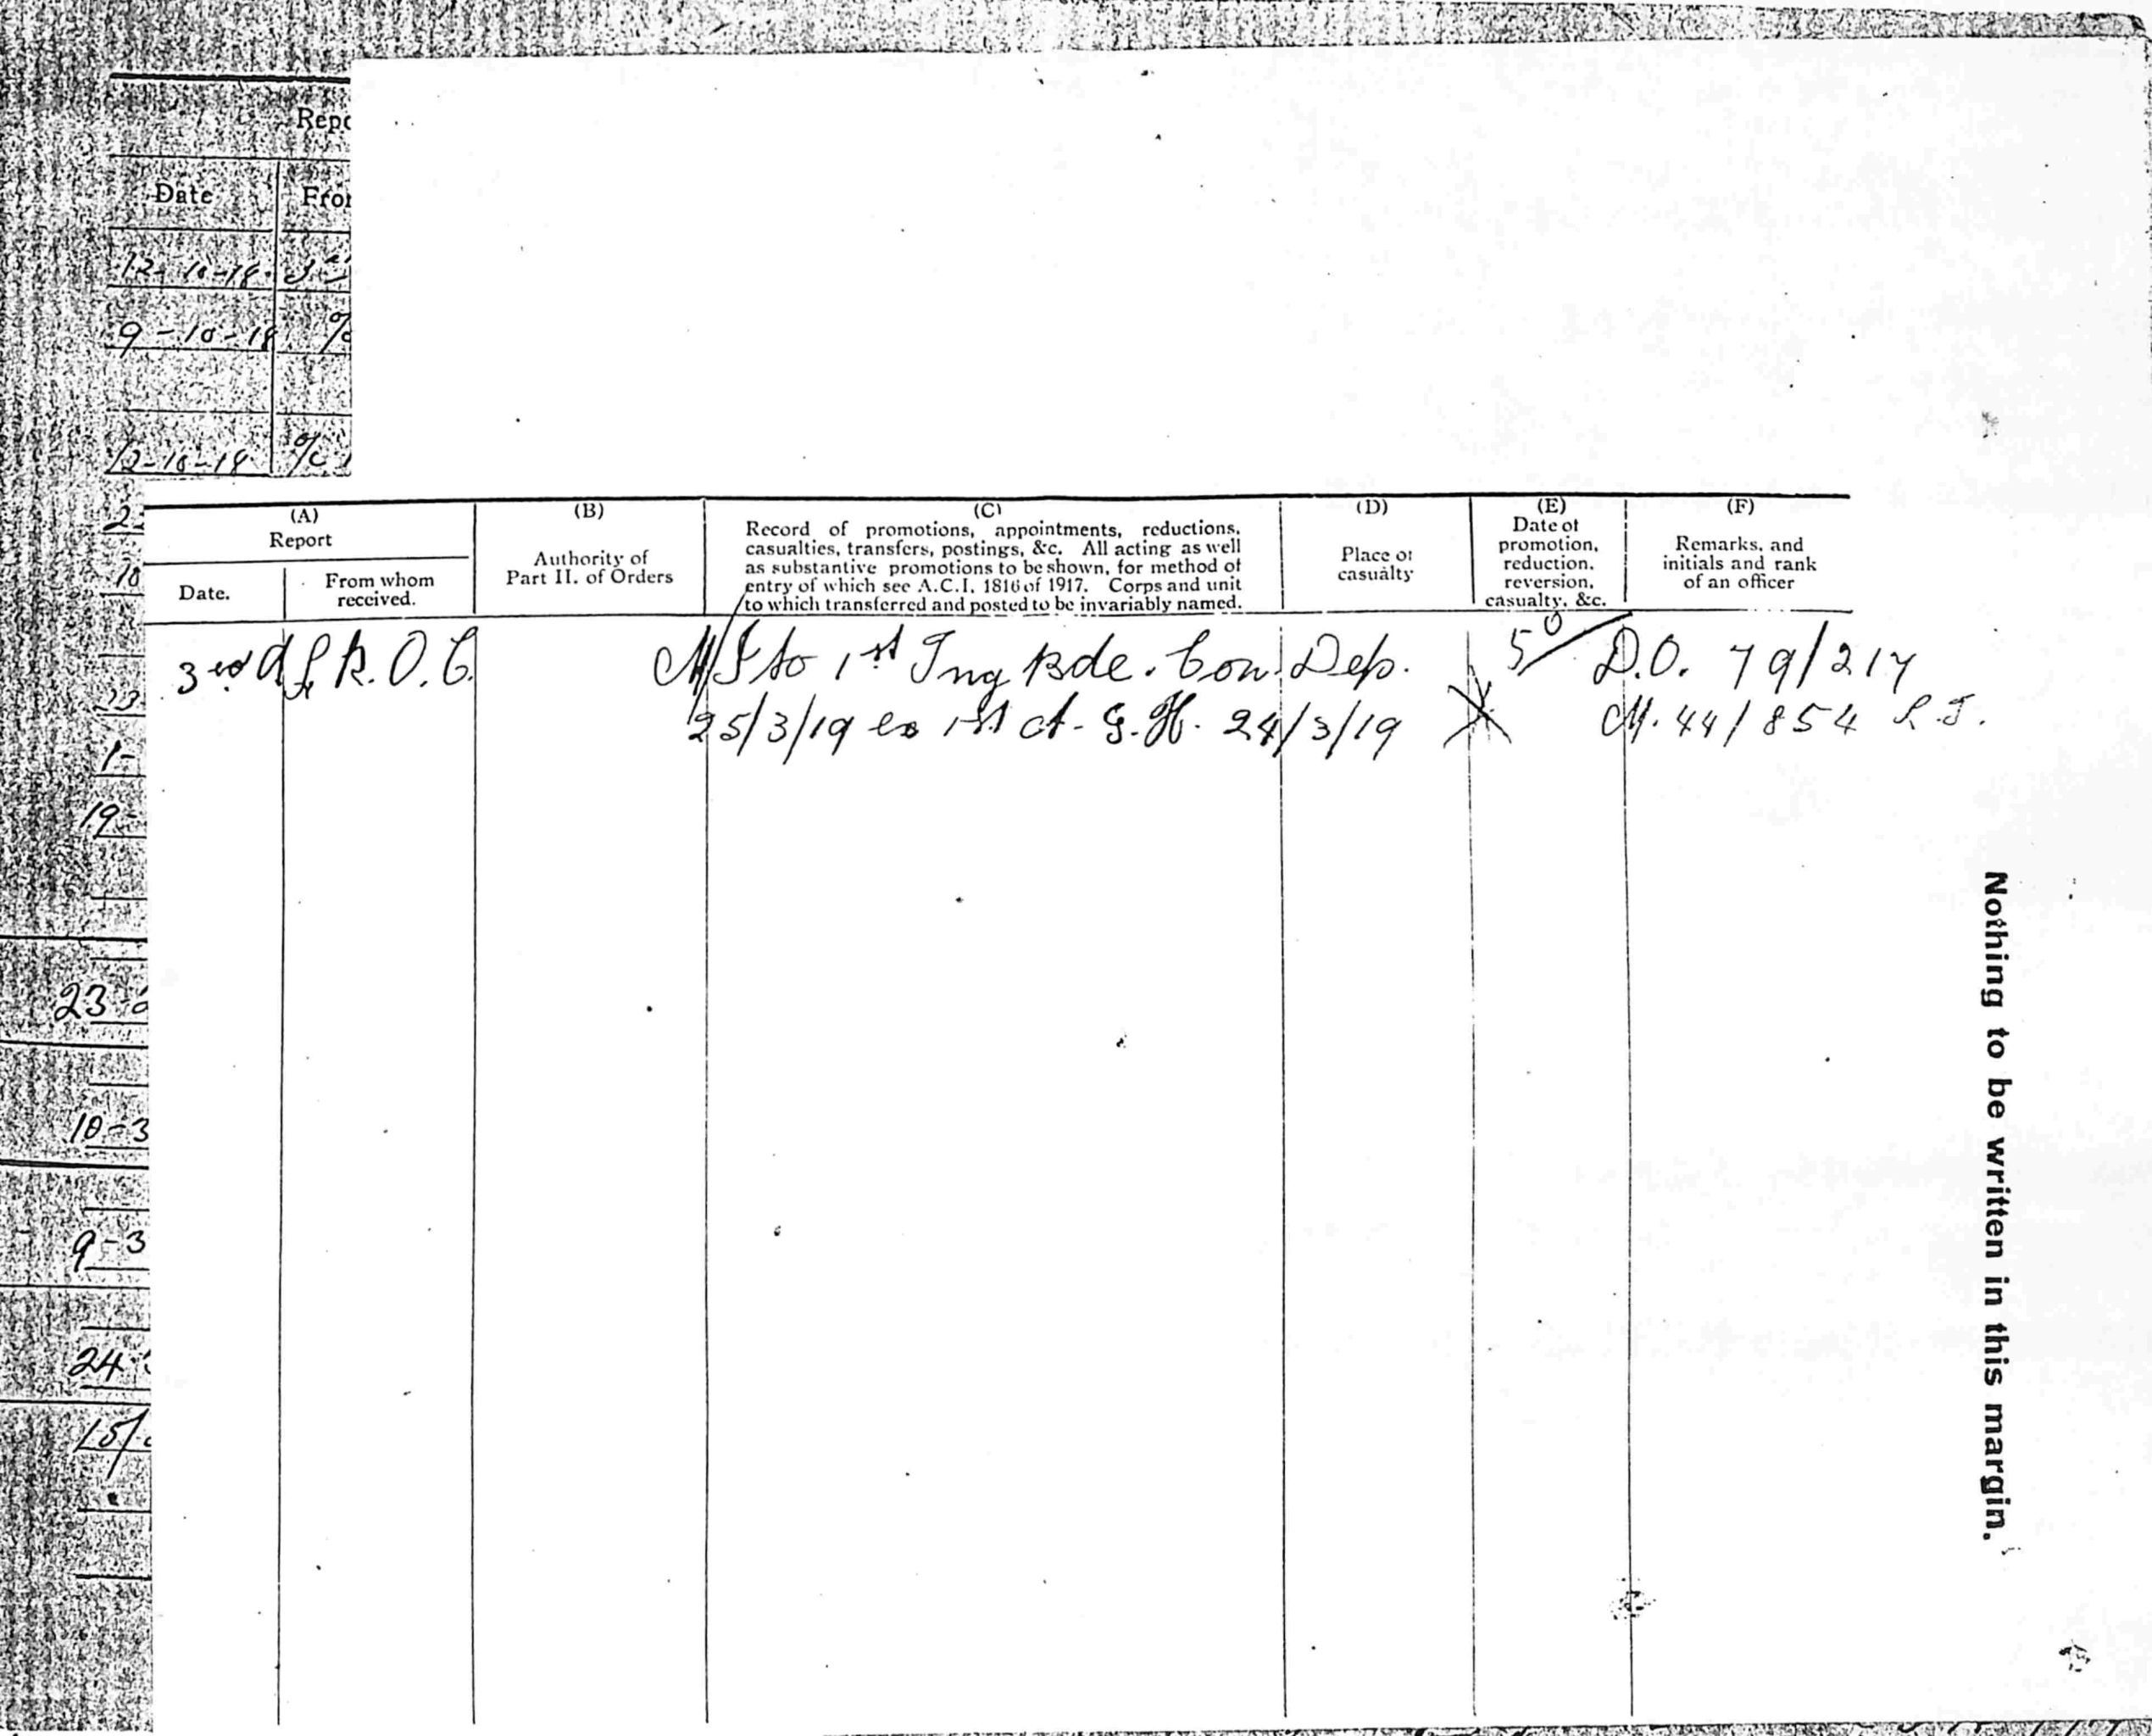 Repo
Date Fro
12-10-18
9-10-18 %
12-10-18 %
(A) (B) (C) (D) (E) (F)
Report
Date. From whom received.
Authority of
Part II. of Orders
Record of promotions, appointments, reductions,
casualties, transfers, postings, &c. All acting as well
as substantive promotions to be shown, for method of
entry of which see A.C.I. 1816 of 1917. Corps and unit
to which transferred and posted to be invariably named.
Place of
casualty
Date of
promotion,
reduction,
reversion,
casualty, &c.
Remarks, and
initials and rank
of an officer
R.O.C. to 1st Trng Bde. Con. Dep. D.O. 79/217
25/3/19 ex 1st A.G.H. 24/3/19 M. 44/854
19-
23-2
10-3
9-3
24-
15/
Nothing to be written in this margin.